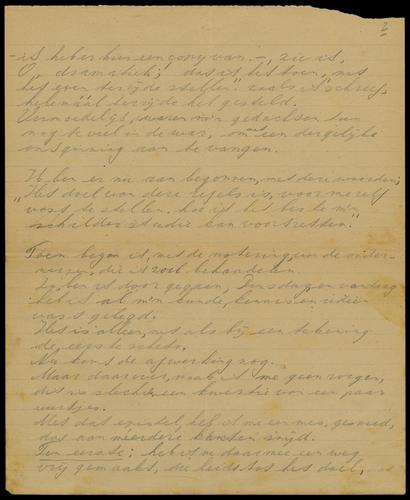 2
- is. heb er hier een copy van. -, zie ik,
O, dramatiek; das is het toen, met
lief even terzijde stellen. zoals ik schreef,
helemáál terzijde het gesteld.
Vermoedelijk, waren m'n gedachten toen
nog te veel in de war, om met een dergelijke
ontginning aan te vangen.
Ik ben er nu aan begonnen, met deze woorden;
"Het doel van deze regels is, voor me zelf
vast te stellen, hoe ik het beste m'n
schilderstudie kan voortzetten."
Toen begon ik, met de notering, van de onder-
werpen, die ik zoal behandelen.
Zo ben ik door gegaan, Dinsdag en vandaag
heb ik al m'n kunde, kennis en ideeën
vast gelegd.
Het is alleen, net als bij een tekening
de, eerste schets.
Nu komt de afwerking nog.
Maar daarover, maak ik me geen zorgen,
dit is slechts een kwestie van een paar
uurtjes.
Met dat epistel, heb ik me een mes, gesmeed,
dat aan meerdere kanten snijd.
Ten eerste; heb ik me daarmee een weg
vrij gemaakt, die leidt tot het doel,